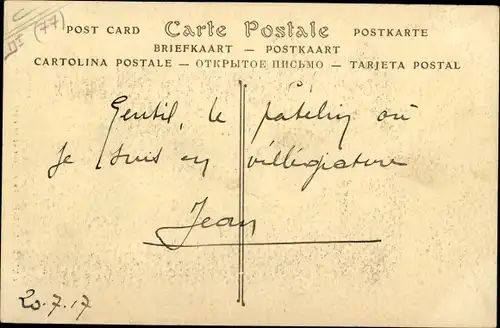 (77)
POST CARD Carte Postale POSTKARTE
BRIEFKAART — POSTKAART
CARTOLINA POSTALE — ОТКРЫТОЕ ПИСЬМО — TARJETA POSTAL
Gentil, le patelin où
je suis en villégiature
Jean
20.7.17